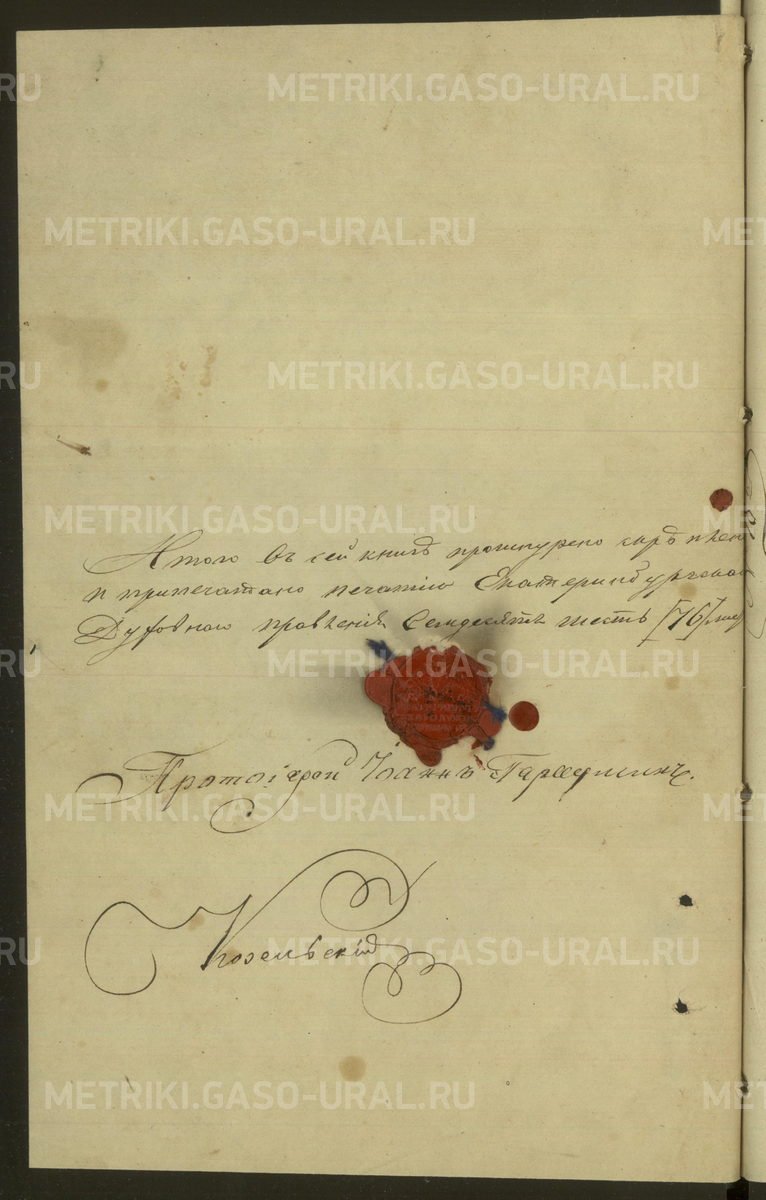 METRIKI.GASO-URAL.RU
METRIKI.GASO-URAL.RU
METRIKI.GASO-URAL.RU
METRIKI.GASO-URAL.RU
Итого въ сей книгѣ прошнурено скрѣплен
и припечатано печатью Екатеринбургскаго
Духовнаго правленія Семдесятъ шесть [76] лист
METRIKI.GASO-URAL.RU
Протоіерей Іоаннъ
METRIKI.GASO-URAL.RU
Козельскій
METRIKI.GASO-URAL.RU
METRIKI.GASO-URAL.RU